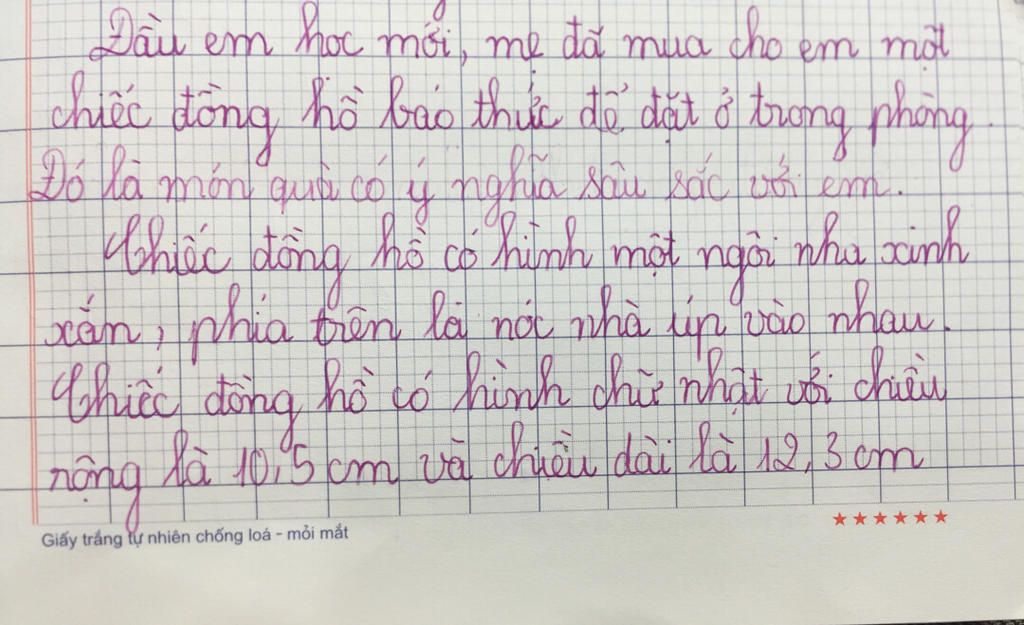 Đầu em học mới, mẹ đã mua cho em một
chiếc đồng hồ báo thức để đặt ở trong phòng.
Đó là món quà có ý nghĩa sâu sắc với em.
Chiếc đồng hồ có hình một ngôi nhà xinh
xắn, phía trên là nóc nhà úp vào nhau.
Chiếc đồng hồ có hình chữ nhật với chiều
rộng là 10,5 cm và chiều dài là 12,3 cm
Giấy trắng tự nhiên chống loá - mỏi mắt